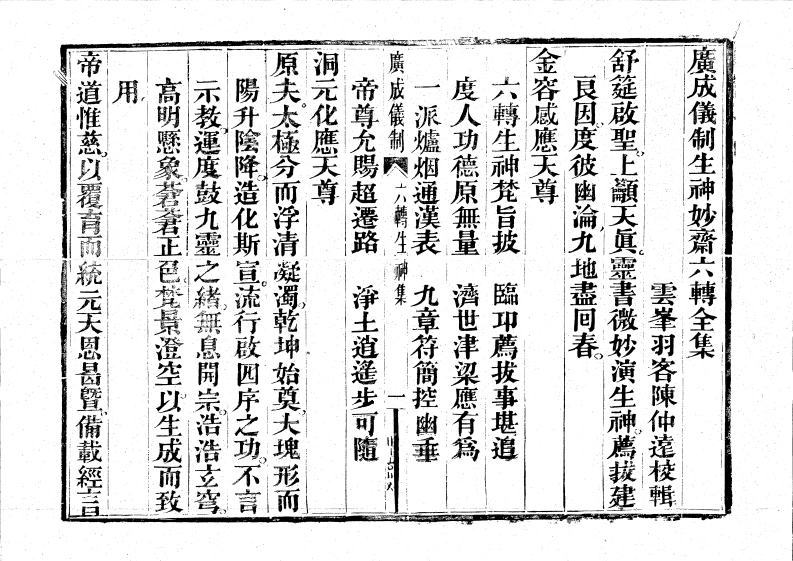 廣成儀制生神妙齋六轉全集
雲峯羽客陳仲遠校輯
舒筵啟聖。上籲天眞。靈書微妙演生神。薦拔建
良因。度彼幽淪。九地盡回春。
金容感應天尊
六轉生神梵旨披　臨卭薦拔事堪追
度人功德原無量　濟世津梁應有爲
一派爐烟通漢表　九章符簡控幽垂
帝尊允賜超遷路　淨土逍遙步可隨
廣成儀制　六轉生神集　一
洞元化應天尊
原夫。太極分而浮清凝濁。乾坤始奠。大塊形而
陽升陰降。造化斯宣。流行啟四序之功。不言
示教。運度鼓九靈之緒。無息開宗。浩浩立穹。
高明懸象。蒼蒼正色。梵景澄空。以生成而致
用
帝道惟慈。以覆育而統元。天恩曷暨。備載經言